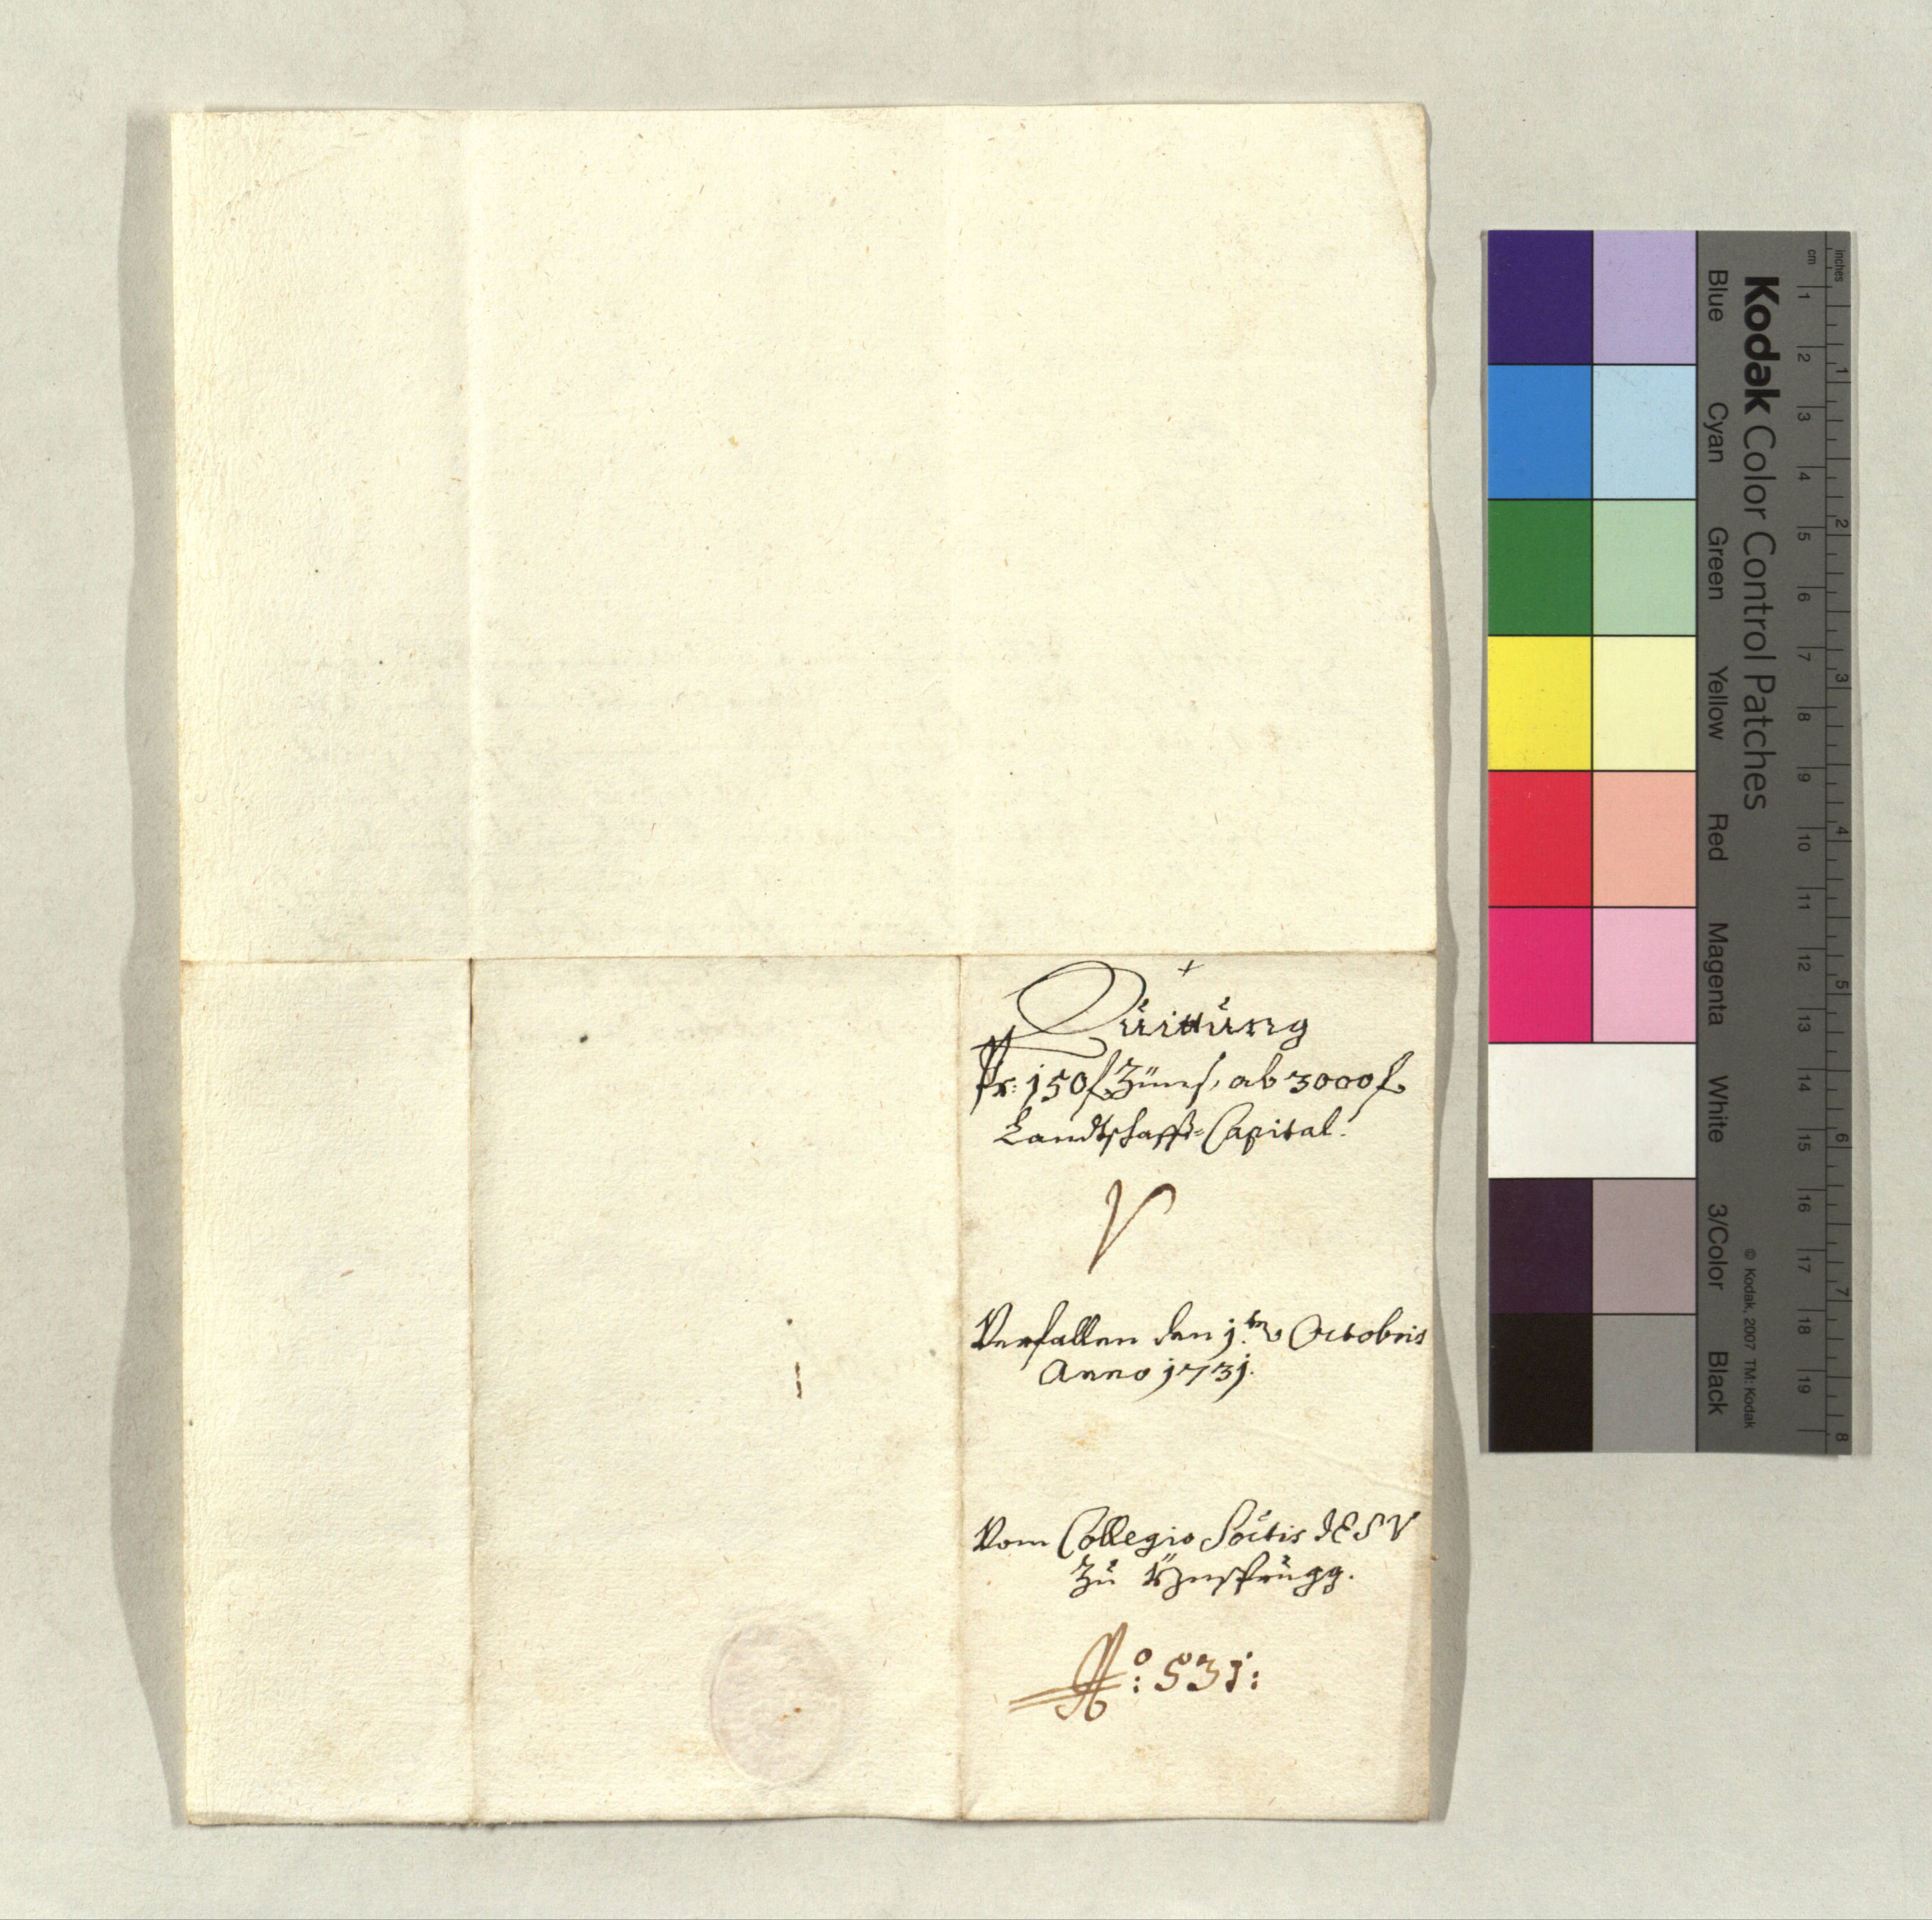 +
Quittung
Pr: 150 f Zünß, ab 3000 f
Landtschafft=Capital.
V
Verfallen den 1.ten Octobris
Anno 1731.
Vom Collegio Soctis JESV
Zu Ynsprugg.
No: 531:
Kodak Color Control Patches
Blue Cyan Green Yellow Red Magenta White 3/Color Black
© Kodak, 2007 TM: Kodak
inches 1 2 3 4 5 6 7 8
cm 1 2 3 4 5 6 7 8 9 10 11 12 13 14 15 16 17 18 19